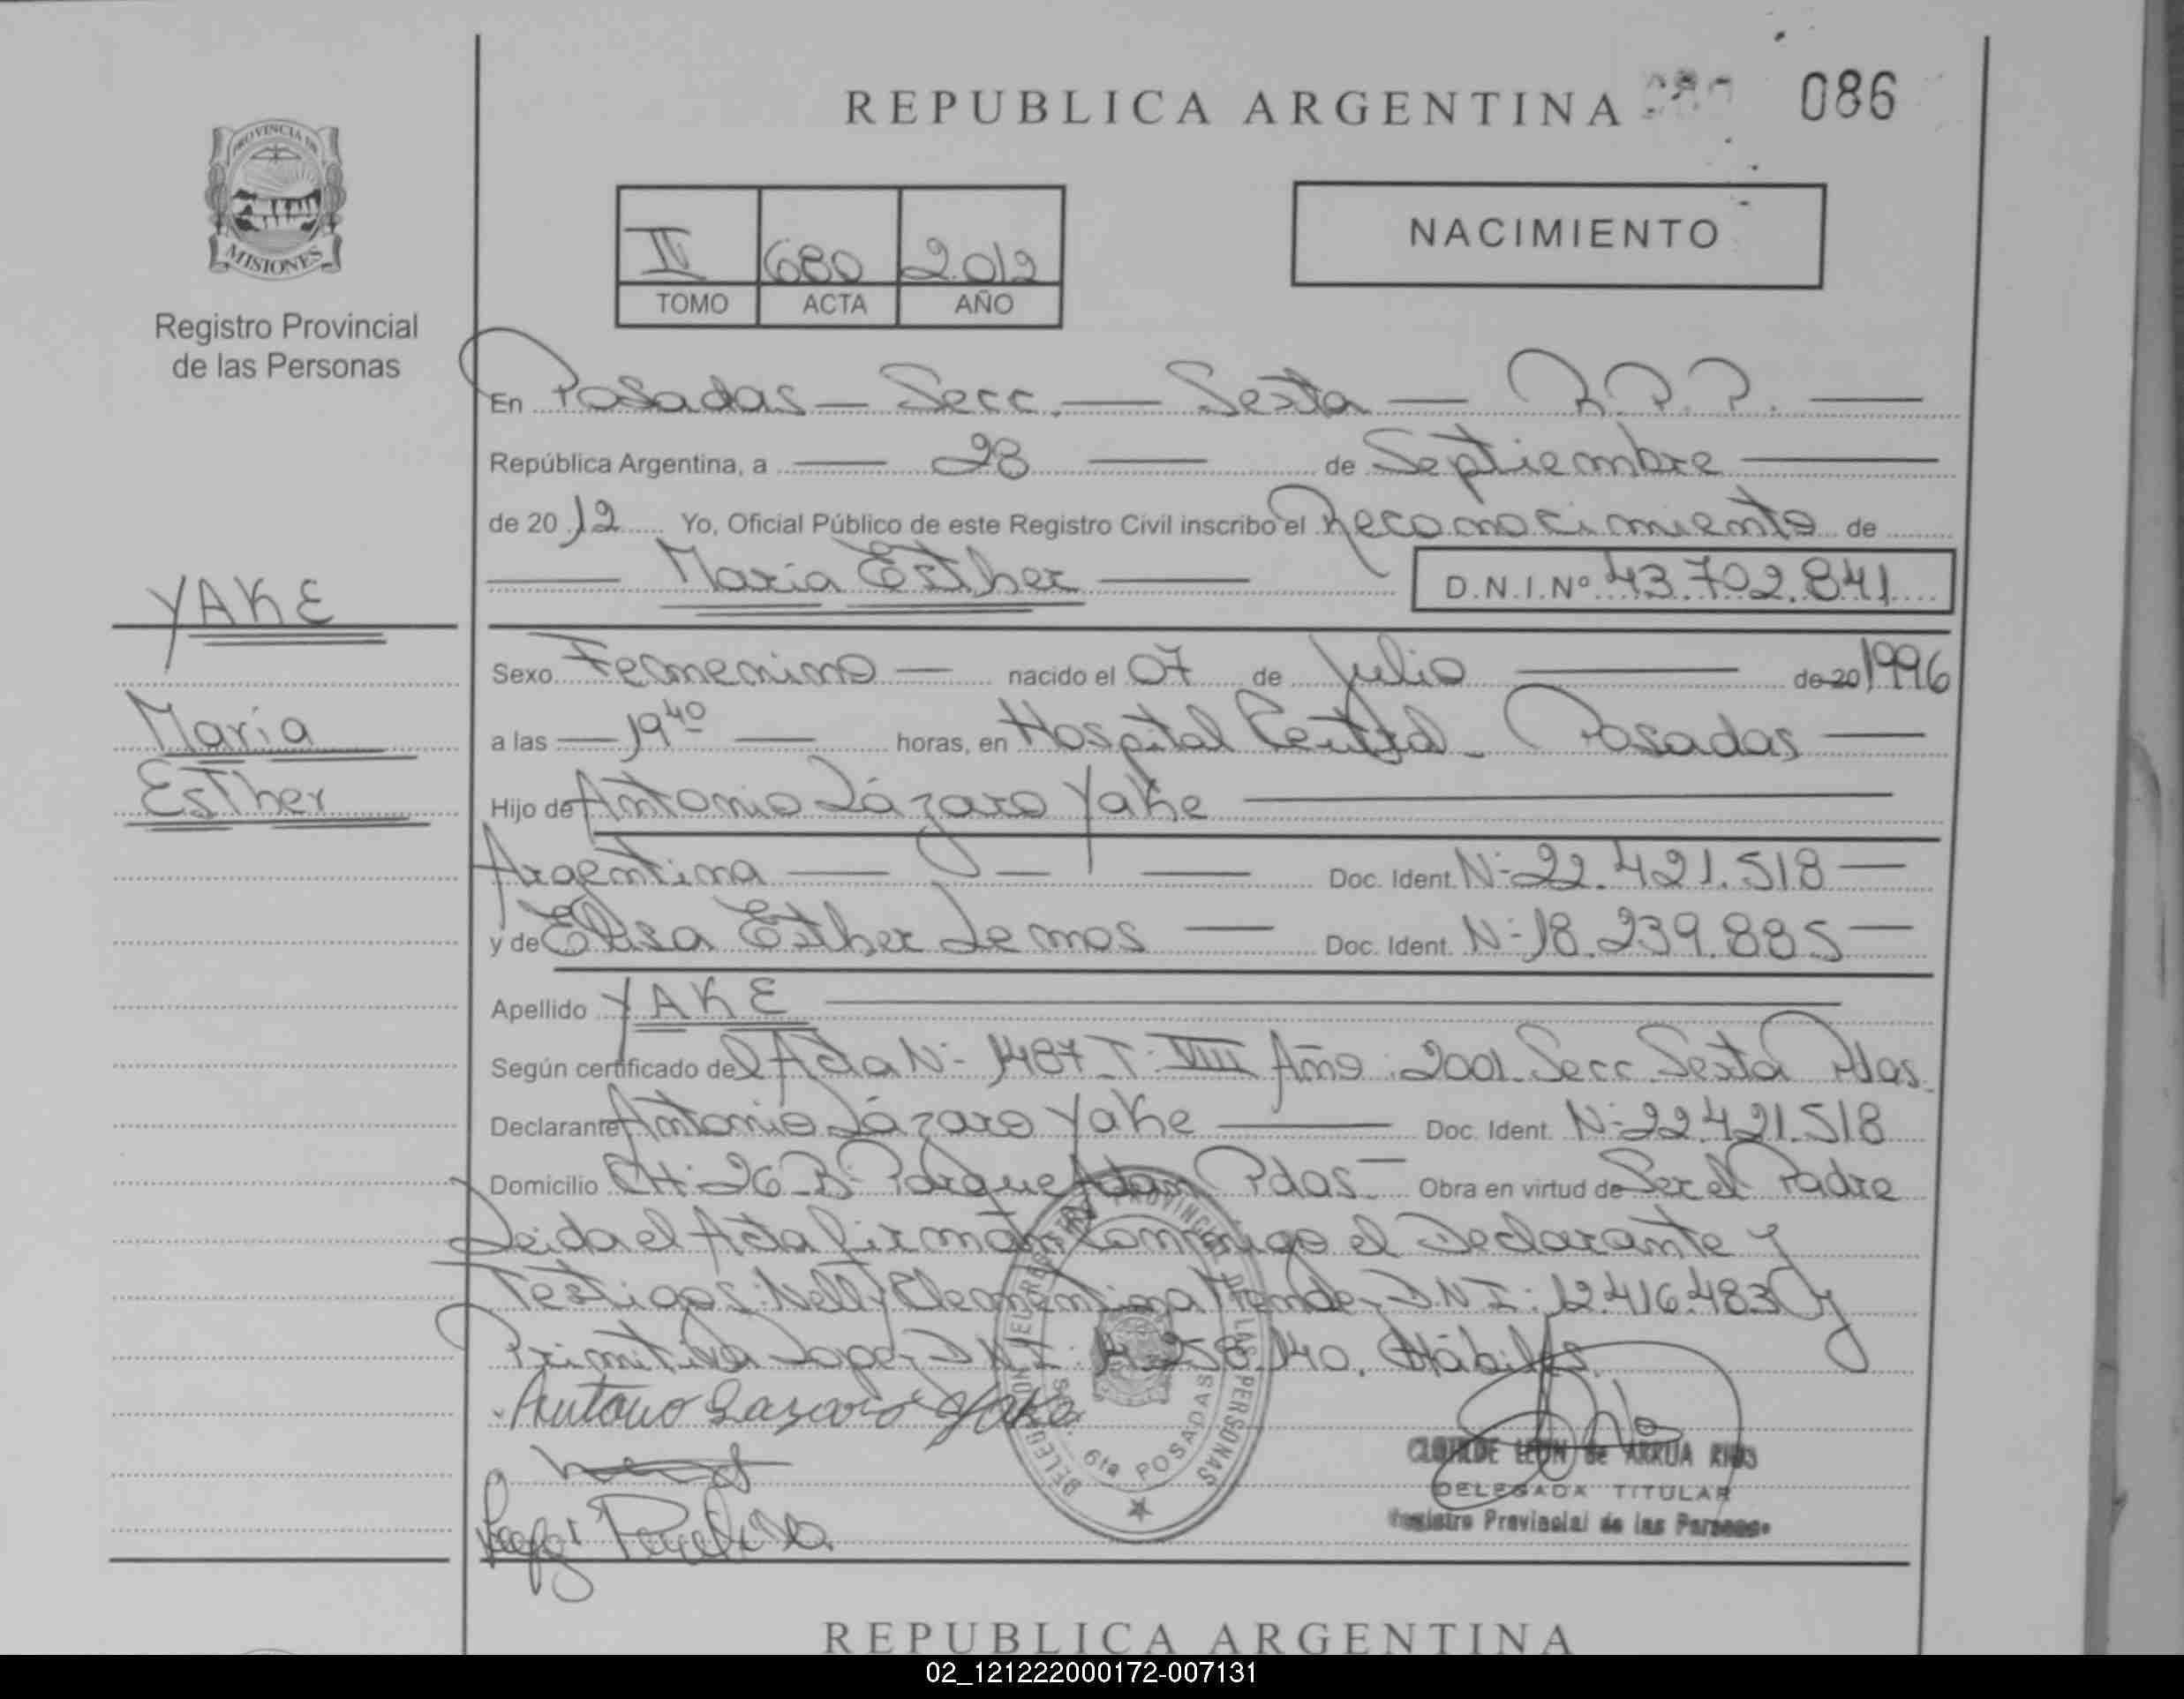 REPUBLICA ARGENTINA
086
PROVINCIA DE
MISIONES
Registro Provincial
de las Personas
IV 680 2012
TOMO ACTA AÑO
NACIMIENTO
En Posadas — Secc. — Sexta — R.P.P. —
República Argentina, a — 28 — de Septiembre —
de 20 12 Yo, Oficial Público de este Registro Civil inscribo el Reconocimiento de
— Maria Esther — D.N.I.Nº 43.702.841
YAKE
María
Esther
Sexo Femenino — nacido el 07 de Julio — de 20 1996
a las — 19 40 — horas, en Hospital Central - Posadas —
Hijo de Antonio Lázaro Yake —
Argentina — — — Doc. Ident. N- 22.421.518 —
y de Elisa Esther Lemos — Doc. Ident. N- 18.239.885 —
Apellido YAKE —
Según certificado del Acta N- 1487 T: VIII Año: 2001. Secc Sexta Pdas.
Declarante Antonio Lázaro Yake — Doc. Ident. N- 22.421.518
Domicilio CH: 26 B- Parque Adam Pdas — Obra en virtud de Ser el Padre
Leida el Acta firman conmigo el Declarante y
Testigos: Nelly Clementina D.N.I: 12.416.483 y
Primitiva DNI: 140. Hábiles.
Antonio Lazaro Yake
DELEGACION REGISTRO PROVINCIAL DE LAS PERSONAS
SECC. 6ta POSADAS
CLOTILDE LEON de ARRUA RIOS
DELEGADA TITULAR
Registro Provincial de las Personas
REPUBLICA ARGENTINA
02_121222000172-007131